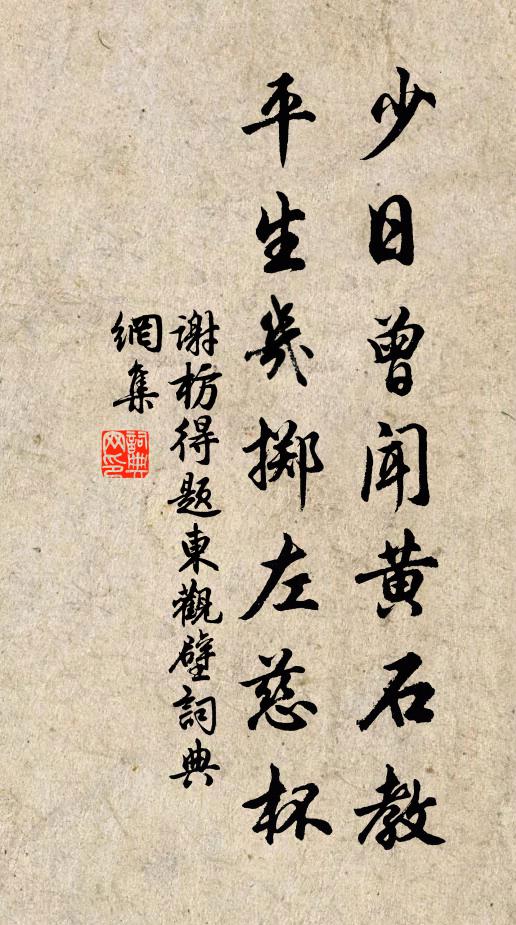 少日曾闻黄石教
平生几掷左慈杯
谢枋得题東觀壁詞典
網集
詞典
网印